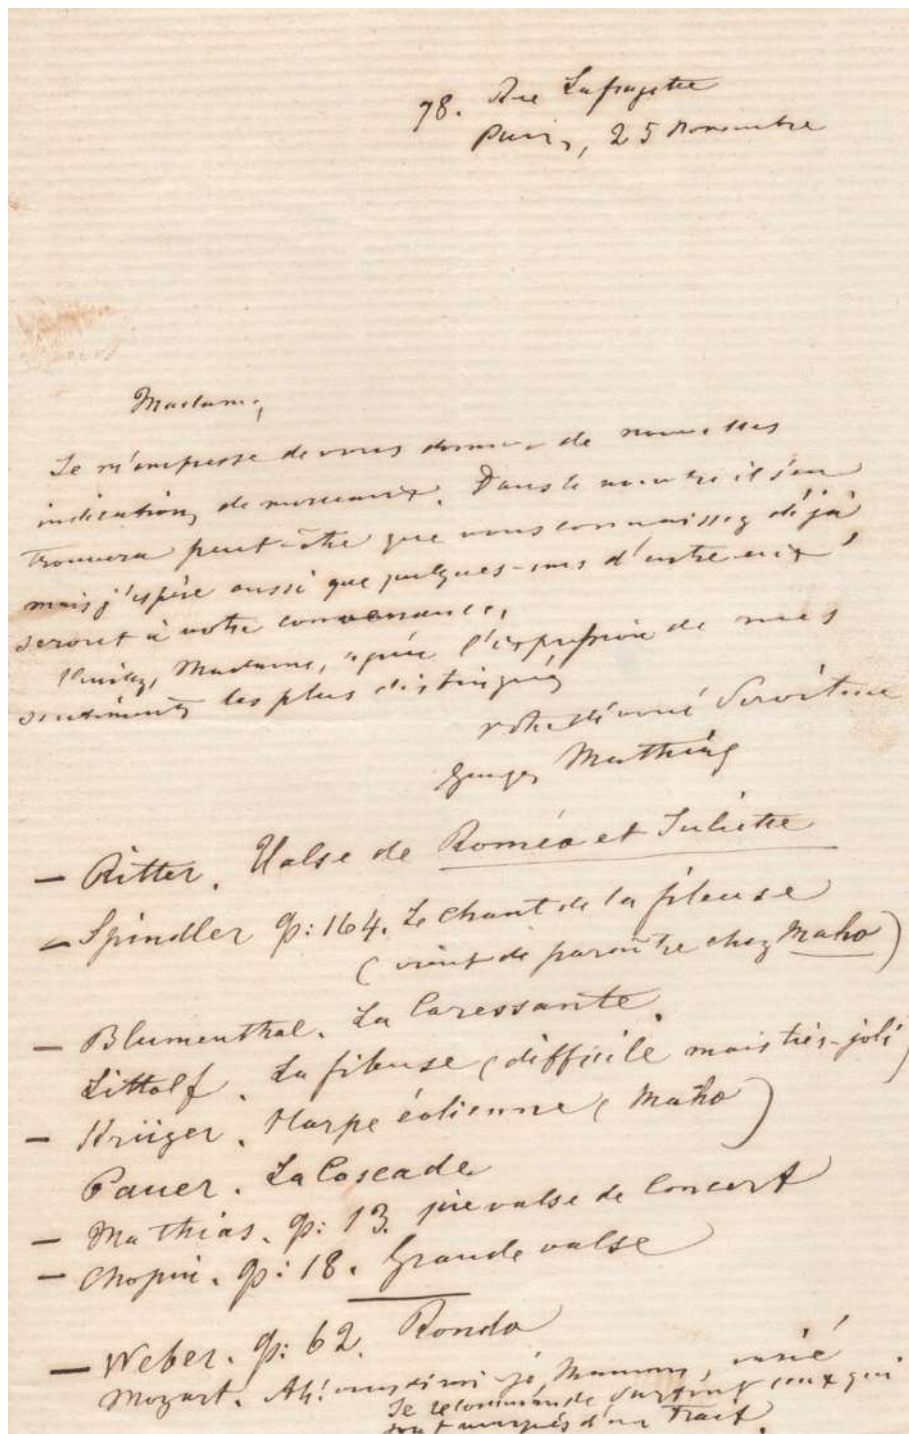 78. Rue Lafayette
Paris, 25 Novembre
Madame,
Je m'empresse de vous donner de nouvelles
indications de morceaux. Dans le nombre il s'en
trouvera peut-être que vous connaissez déjà
mais j'espère aussi que quelques-uns d'entre eux
seront à votre convenance.
Veuillez, Madame, agréer l'expression de mes
sentiments les plus distingués
votre dévoué Serviteur
Georges Mathias
— Ritter. Valse de Roméo et Juliette
— Spindler Op: 164. Le chant de la fileuse
(vient de paraître chez Maho)
— Blumenthal. La Caressante.
Littolf. La fileuse (difficile mais très-joli)
— Krüger. Harpe éolienne (Maho)
Pauer. La Cascade
— Mathias. Op: 13. 1ère valse de Concert
— Chopin. Op: 18. Grande valse
— Weber. Op: 62. Rondo
Mozart. Ah! vous dirai-je, Maman, varié
Je recommande surtout ceux qui
sont marqués d'un Trait.